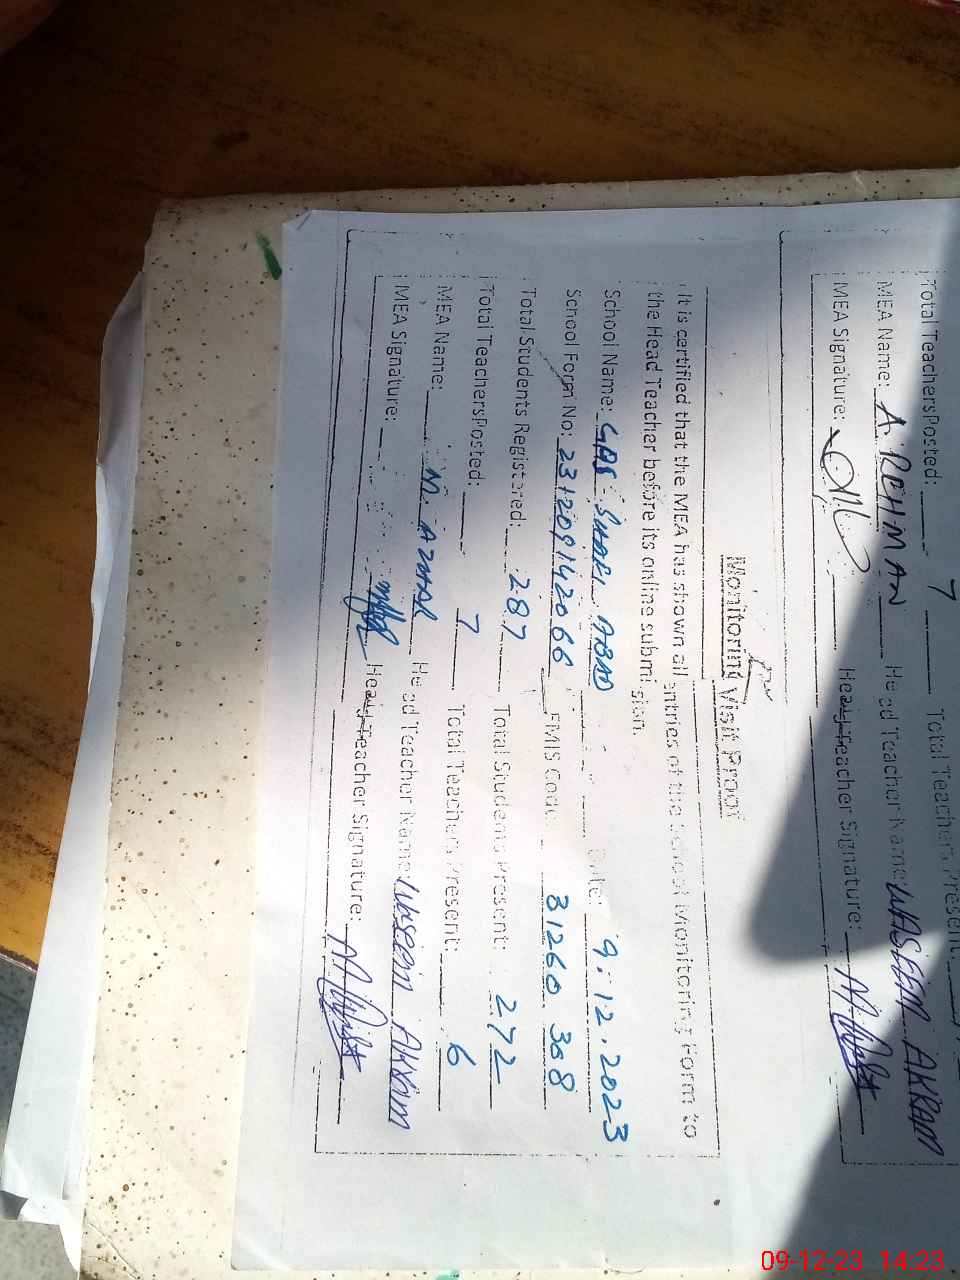 Total TeachersPosted: 7 Total Teachers Present:
MEA Name: A. REHMAN Head Teacher Name: WASEEM AKRAM
MEA Signature: Head Teacher Signature:
Monitoring Visit Proof
It is certified that the MEA has shown all entries of the School Monitoring Form to
the Head Teacher before its online submission.
School Name: GPS ABAD Date: 9.12.2023
School Form No: 231209142066 EMIS Code: 31260 308
Total Students Registered: 287 Total Students Present: 272
Total TeachersPosted: 7 Total Teachers Present: 6
MEA Name: M. Head Teacher Name Waseem Akram
MEA Signature: Head Teacher Signature:
09-12-23 14:23